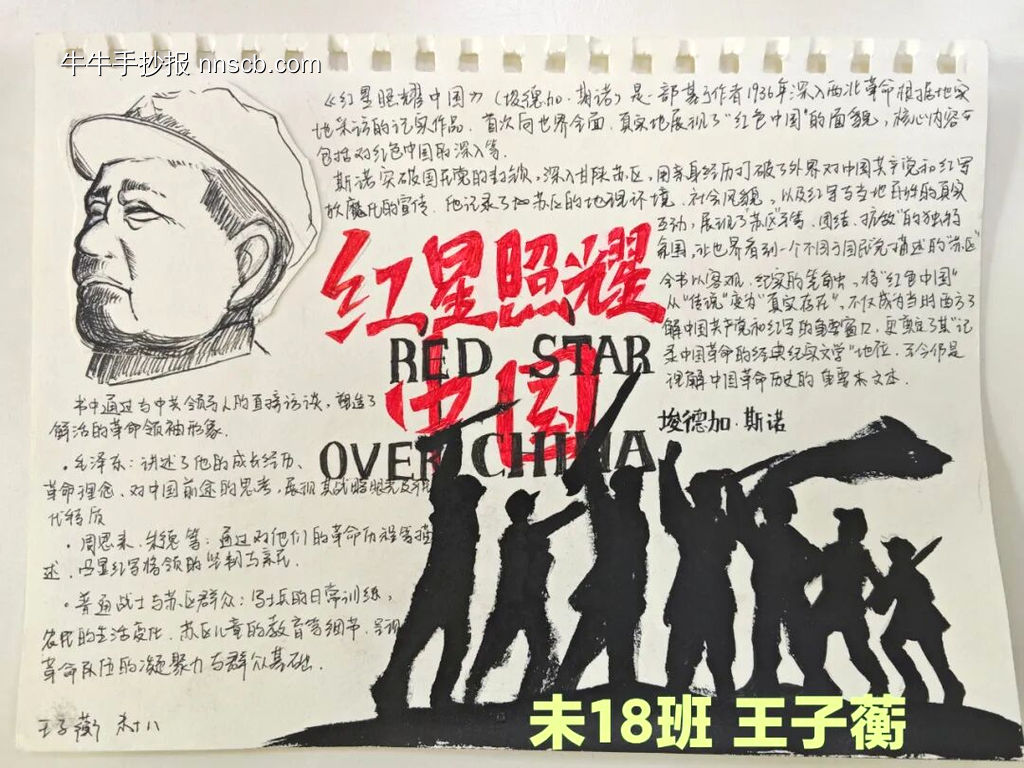 牛牛手抄报 nnscb.com
《红星照耀中国》(埃德加·斯诺)是一部基于作者1936年深入西北革命根据地实
地采访的记实作品，首次向世界全面、真实地展现了"红色中国"的面貌，核心内容
包括对红色中国的深入等.
斯诺突破国民党的封锁，深入甘陕苏区，用亲身经历打破了外界对中国共产党和红军
妖魔化的宣传. 他记录了 苏区的地理环境、社会风貌，以及红军与当地百姓的真实
互动，展现了苏区"平等、团结、 "的独特
氛围，让世界看到一个不同于国民党描述的"苏区"
全书以客观、纪实的笔触，将"红色中国"
从"传说"变为"真实存在"，不仅成为当时西方了
解中国共产党和红军的重要窗口，更奠定了其"记
录中国革命的经典纪实文学"地位，至今仍是
理解中国革命历史的重要 文本.
埃德加·斯诺
红星照耀
中国
RED STAR
OVER CHINA
书中通过与中共领导人的直接访谈，塑造了
鲜活的革命领袖形象.
·毛泽东：讲述了他的成长经历、
革命理念、对中国前途的思考，展现其战略眼光及
代特质
·周恩来、朱德等：通过对他们的革命历程等描
述， 显红军将领的坚韧与亲民.
·普通战士与苏区群众：写士兵的日常训练，
农民的生活变化、苏区儿童的教育等细节，呈现
革命队伍的凝聚力与群众基础.
王子蘅 未十八
未18班 王子蘅